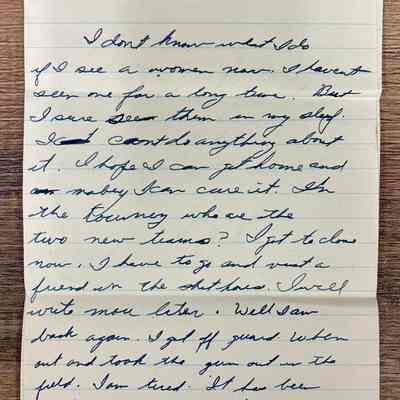 I don't know what I do
if I see a women now. I havent
seen one for a long time. But
I sure see them in my sleep.
I can't do anything about
it. I hope I can get home and
mabey I can cure it. In
the tourney who are the
two new teams? I got to close
now. I have to go and visit a
friend in the shit house. I will
write more later. Well I am
back again. I got off guard. When
out and took the gun out in the
field. I am tired. It has been